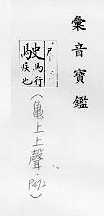 彙音寶鑑
駛
馬行
疾也
(龜上上聲)